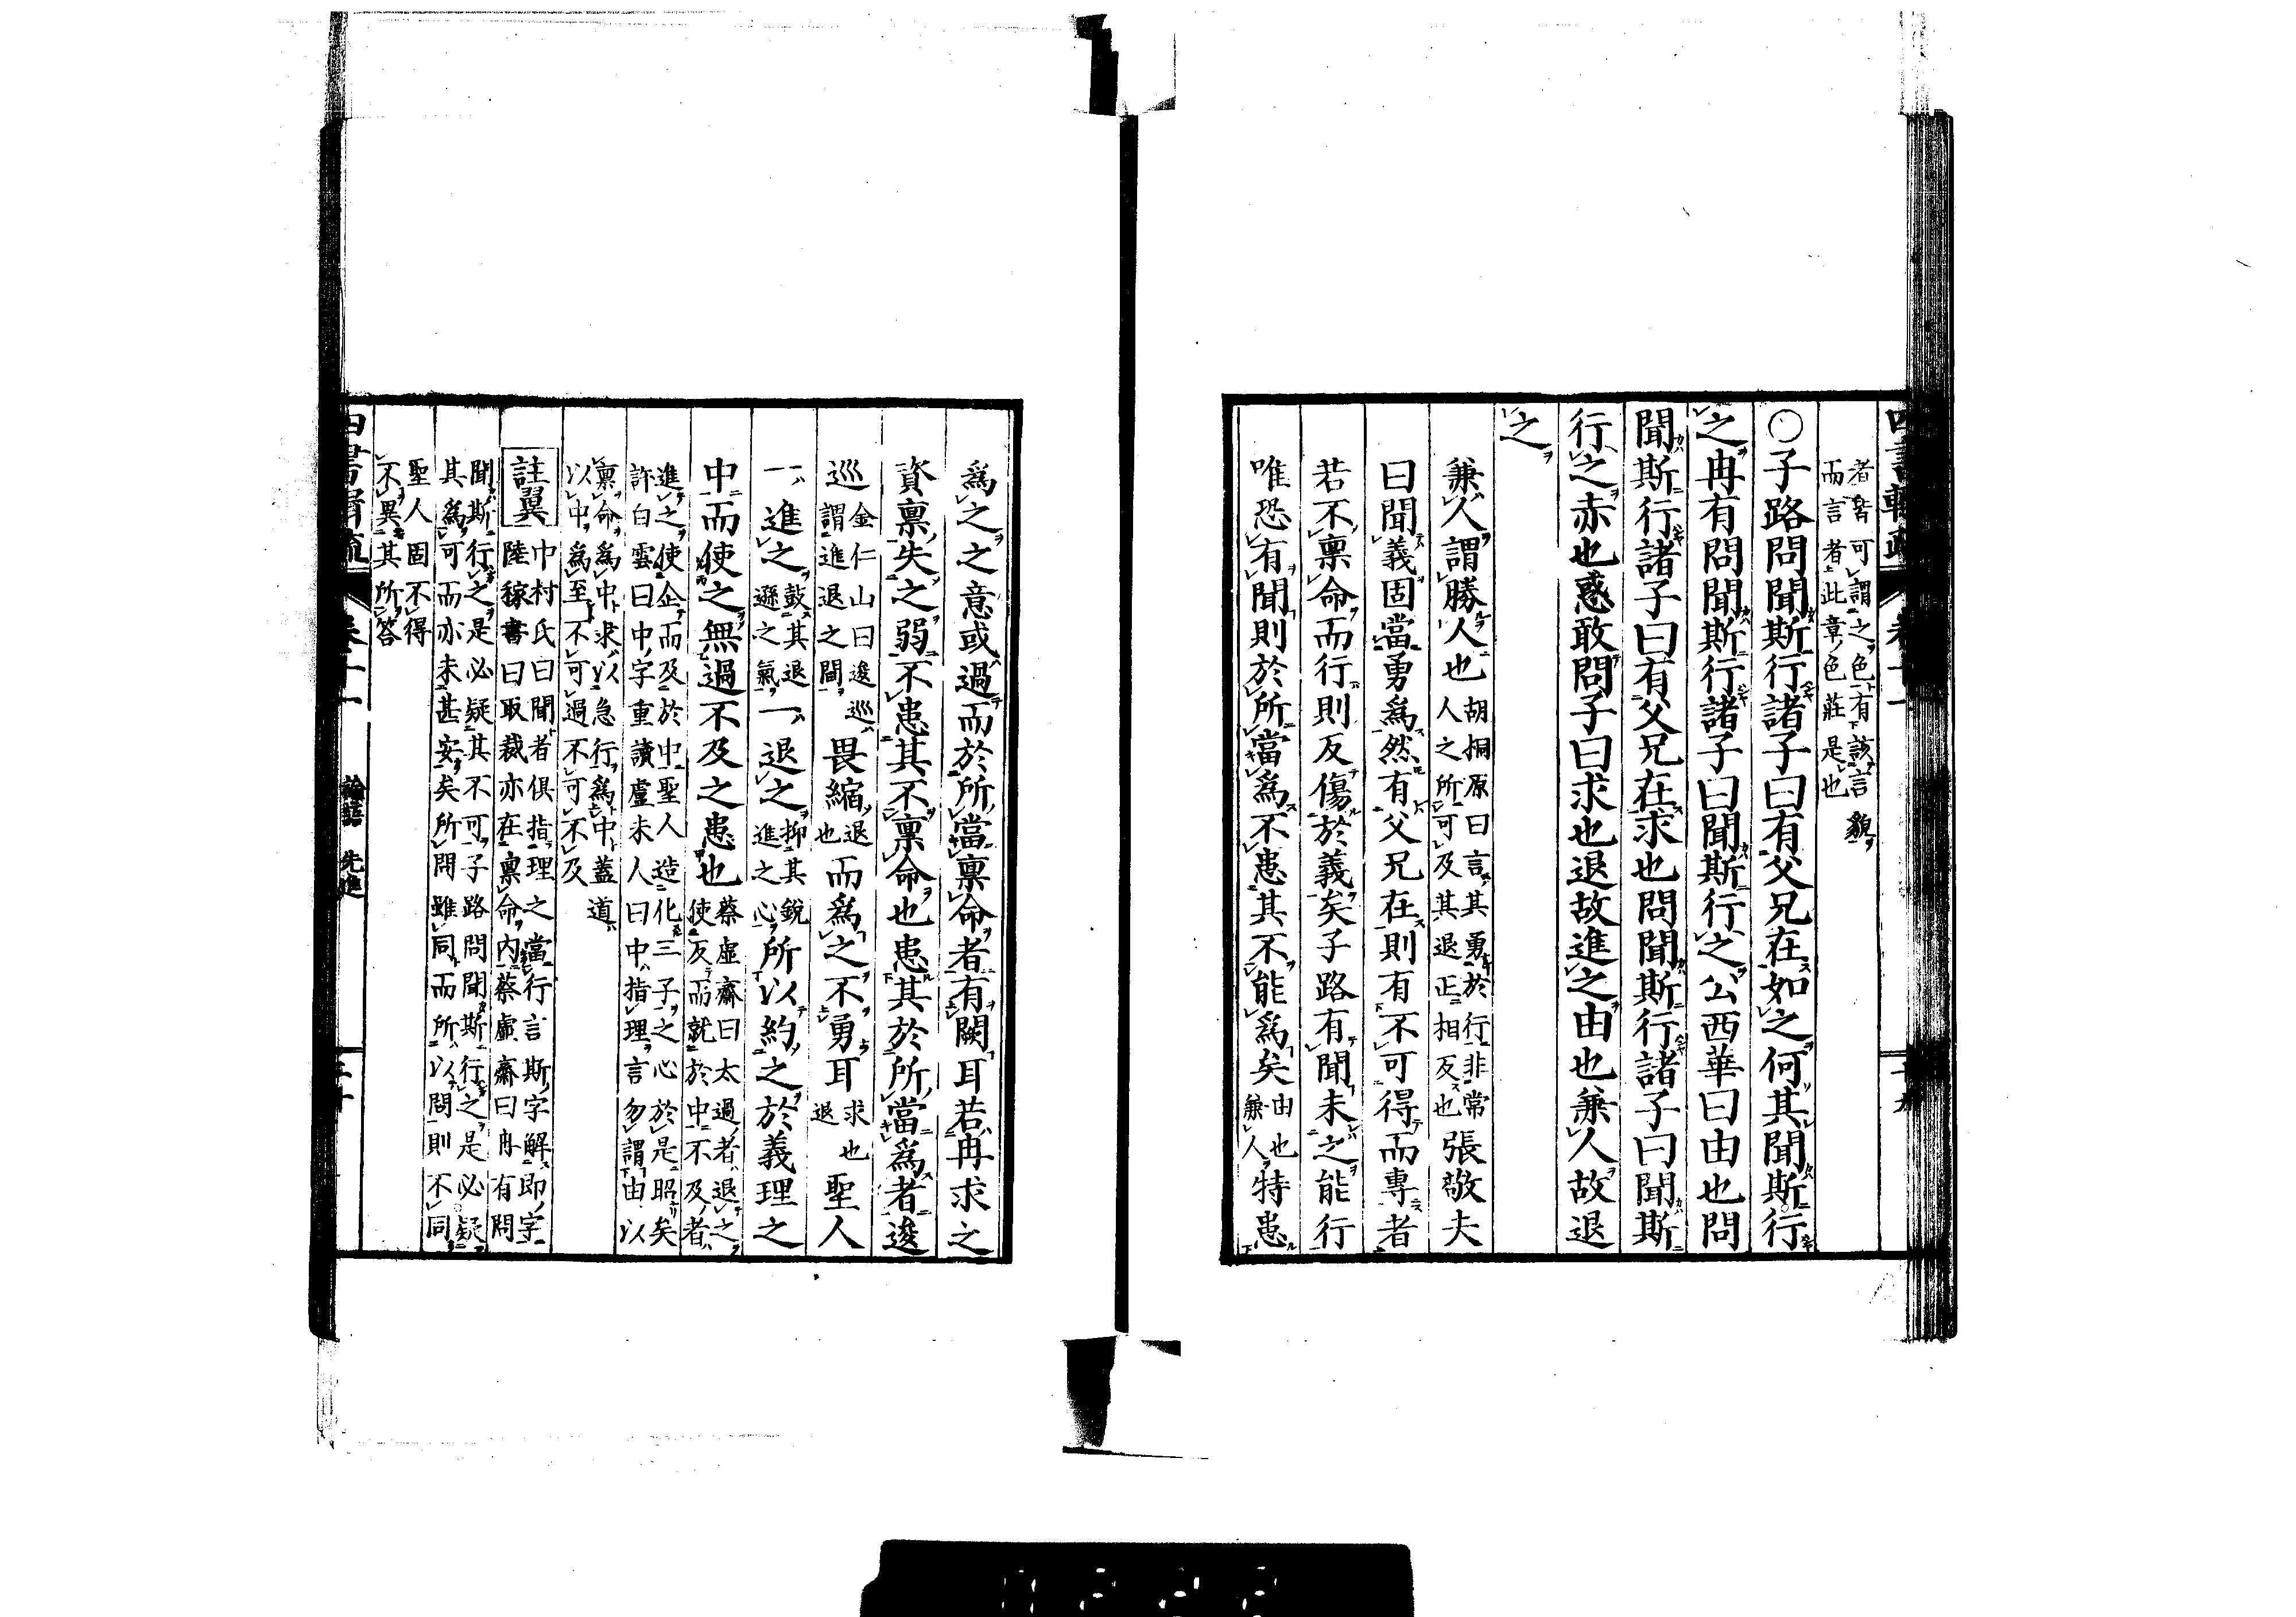 者皆可謂之色有該言貌
而言者此章色莊是也
○子路問聞斯行諸子曰有父兄在如之何其聞斯行
之冉有問聞斯行諸子曰聞斯行之公西華曰由也問
聞斯行諸子曰有父兄在求也問聞斯行諸子曰聞斯
行之赤也惑敢問子曰求也退故進之由也兼人故退
之
兼人謂勝人也
胡桐原曰言其勇於行非常
人之所可及其退正相反也
張敬夫
曰聞義固當勇爲然有父兄在則有不可得而專者
若不稟命而行則反傷於義矣子路有聞未之能行
唯恐有聞則於所當爲不患其不能爲矣
由也
兼人
特患
爲之之意或過而於所當稟命者有闕耳若冉求之
資稟失之弱不患其不稟命也患其於所當爲者逡
巡
金仁山曰逡巡
謂進退之間
畏縮
退
也
而爲之不勇耳
求也
退
聖人
一進之
鼓其退
遜之氣
一退之
抑其銳
進之心
所以約之於義理之
中而使之無過不及之患也
蔡虛齋曰太過者退之
使反而就於中不及者
進之使企而及於中聖人造化三子之心於是昭矣
許白雲曰中字重讀盧未人曰中指理言勿謂由以
稟命爲中求以急行爲中蓋道
以中爲至不可過不可不及
註翼
中村氏曰聞者俱指理之當行言斯字解即字
陸稼書曰取裁亦在稟命內蔡虛齋曰冉有問
聞斯行之是必疑其不可子路問聞斯行之是必疑
其爲可而亦未甚安矣所問雖同而所以問則不同
聖人固不得
不異其所答
論語 先進